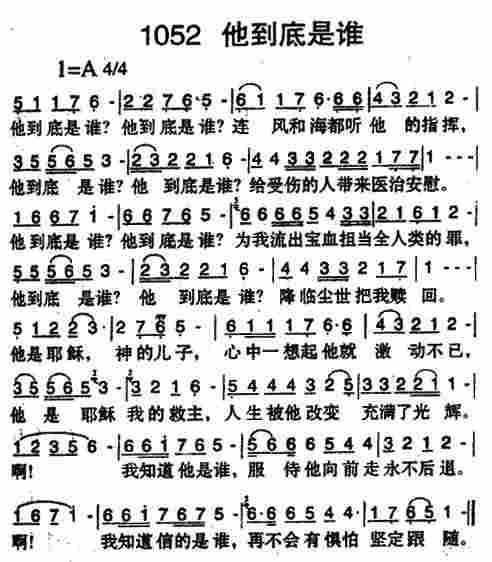 1052 他到底是谁
1=A 4/4
5 1 1 7 6 - | 2 2 7 6· 5 - | 6 1 1 7 6· 6 6 | 4 3 2 1 2 - |
他到底是谁? 他到底是谁? 连 风和海都听他 的指挥,
3 5 5 6 5 3 - | 2 3 2 2 1 6 - | 4 4 3 2 2 2 2 1 7 7 | 1 - - - |
他到底 是谁? 他 到底是谁? 给受伤的人带来医治安慰。
1 6 6 7 i - | 6 6 7 6 5 - | 6 6 6 6 5 4 3 3 | 2 1 6 1 2 - |
他到底是谁? 他到底是谁? 为我流出宝血担当全人类的罪,
5 5 5 6 5 3 - | 2 3 2 2 1 6 - | 4 4 3 3 2 1 7 | 1 - - - |
他到底 是谁? 他 到底是谁? 降临尘世把我赎 回。
5 1 2 2 3· | 2 7 6 5 - | 6 1 1 1 7 6 7 6 | 4 3 2 1 2 - |
他是耶稣, 神的儿子, 心中一想起他就 激 动不已,
3 5 5 6 5 3 - | 3 2 1 6 - | 5 4 4 4 4 3 2 5 | 3 3 2 2 1 1 - |
他 是 耶稣 我的救主, 人生被他改变 充满了光 辉。
1 2 3 5 6 - | 6 6 i 7 6 5 - | 5 6 6 6 5 4 4 | 3 2 1 2 - |
啊! 我知道他是谁, 服 侍他向前走永不后退。
1 6 7 i - | 6 6 i 7 6 5 - | 6· 6 6 5 4 4 | 1 7 6 5 1 - ||
啊! 我知道信的是谁, 再不会有惧怕 坚定跟 随。